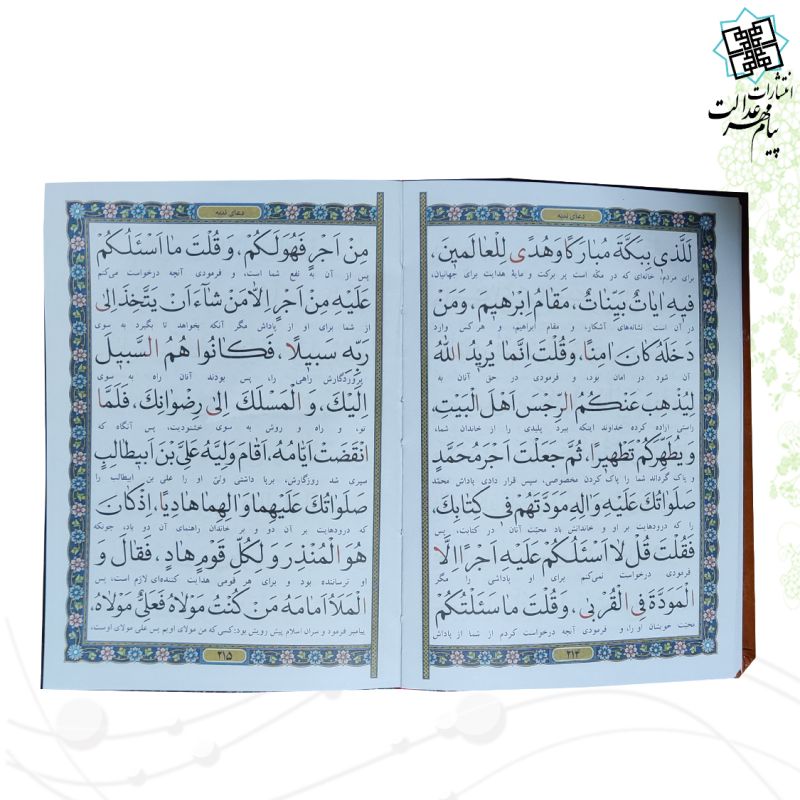 انتشارات
پیام مهر عدالت
دعای ندبه
لَلَّذی بِبَکَّةَ مُبارَکًا وَ هُدًی لِلْعالَمینَ،
برای مردم؛ خانه‌ای که در مکّه است پر برکت و مایهٔ هدایت برای جهانیان،
فیهِ ایاتٌ بَیِّناتٌ، مَقامُ اِبْرهیمَ، وَمَنْ
در آن است نشانه‌های آشکار، و مقام ابراهیم، و هر کس وارد
دَخَلَهُ کانَ امِنًا، وَ قُلْتَ اِنَّما یُریدُ اللهُ
آن شود در امان بود، و فرمودی در حق آنان به
لِیُذْهِبَ عَنْکُمُ الرِّجْسَ اَهْلَ الْبَیْتِ،
راستی اراده کرده خداوند اینکه ببرد پلیدی را از خاندان شما،
وَ یُطَهِّرَکُمْ تَطْهیرًا، ثُمَّ جَعَلْتَ اَجْرَ مُحَمَّدٍ
و پاک گرداند شما را پاک کردن مخصوصی، سپس قرار دادی پاداش محمّد
صَلَواتُکَ عَلَیْهِ وَالِهِ مَوَدَّتَهُمْ فی کِتابِکَ،
را که درودهایت بر او و خاندانش باد محبّت آنان در کتابت، پس
فَقُلْتَ قُلْ لا اَسْئَلُکُمْ عَلَیْهِ اَجْرًا اِلَّا
فرمودی درخواست نمی‌کنم برای او پاداشی را مگر
الْمَوَدَّةَ فِی الْقُرْبی، وَ قُلْتَ ما سَئَلْتُکُمْ
محبّت خویشان او را، و فرمودی آنچه درخواست کردم از شما از پاداش
۲۱۴
دعای ندبه
مِنْ اَجْرٍ فَهُوَ لَکُمْ، وَ قُلْتَ ما اَسْئَلُکُمْ
پس از آن به نفع شما است، و فرمودی آنچه درخواست می‌کنم
عَلَیْهِ مِنْ اَجْرٍ اِلّا مَنْ شآءَ اَنْ یَتَّخِذَ اِلی
از شما برای او از پاداش مگر آنکه بخواهد تا بگیرد به سوی
رَبِّهِ سَبیلًا، فَکانُوا هُمُ السَّبیلَ
پروردگارش راهی را، پس بودند آنان راه به سوی
اِلَیْکَ، وَ الْمَسْلَکَ اِلی رِضْوانِکَ، فَلَمَّا
تو، و راه و روش به سوی خشنودیت، پس آنگاه که
انْقَضَتْ اَیّامُهُ، اَقامَ وَلِیَّهُ عَلِیَّ بْنَ اَبیطالِبٍ
سپری شد روزگارش، برپا داشتی ولیّ او را علی بن ابیطالب را
صَلَواتُکَ عَلَیْهِما وَ الِهِما هادِیًا، اِذْ کانَ
که درودهایت بر آن دو و بر خاندان راهنمای آن دو باد، چونکه
هُوَ الْمُنْذِرَ وَ لِکُلِّ قَوْمٍ هادٍ، فَقالَ وَ
او ترساننده بود و برای هر قومی هدایت کننده‌ای لازم است، پس
الْمَلَاُ اَمامَهُ مَنْ کُنْتُ مَوْلاهُ فَعَلِیٌّ مَوْلاهُ،
پیامبر فرمود و سران اسلام پیش رویش بود: کسی که من مولای اویم پس علی مولای اوست،
۲۱۵